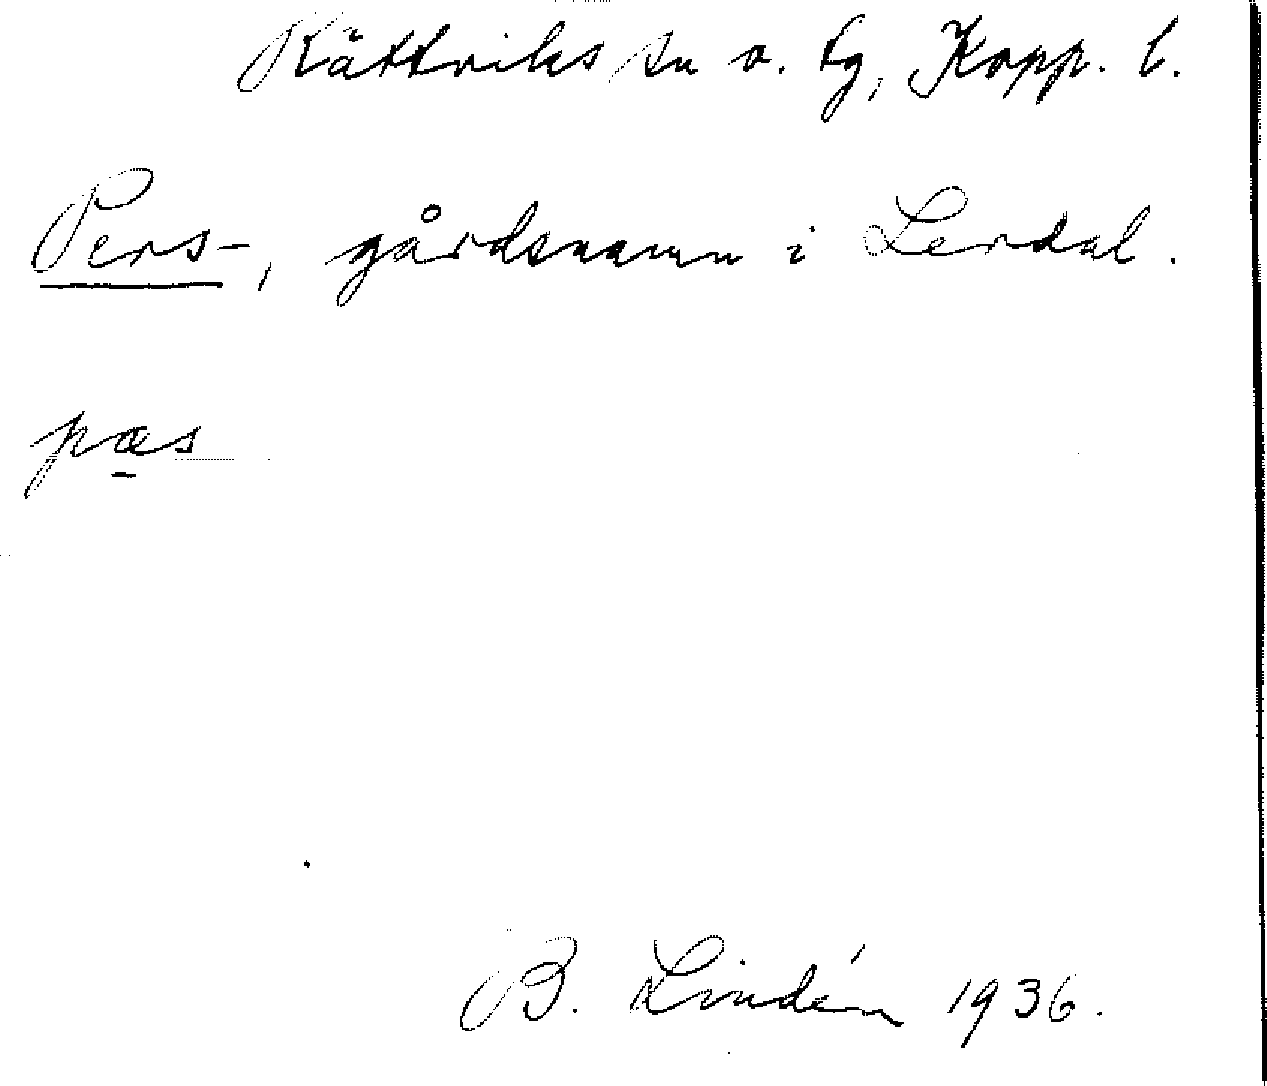 Rättviks sn o. tg, Kopp. l.
Pers-, gårdsnamn i Lerdal.
pæs
B. Lindén 1936.